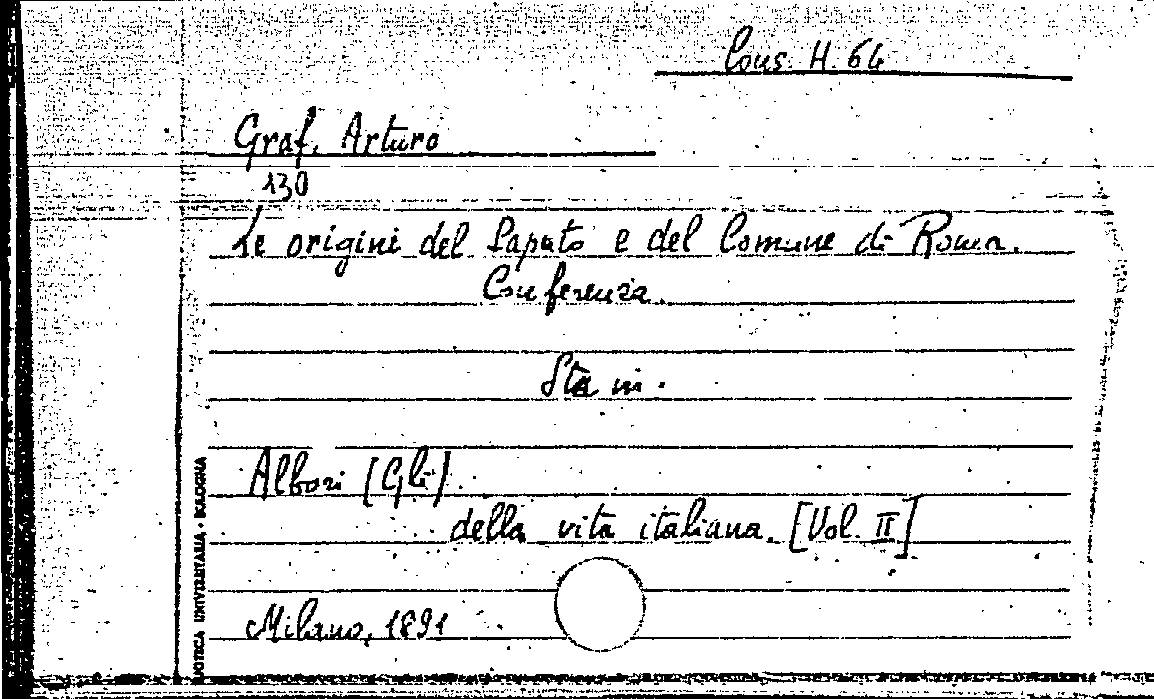 Cons. H. 64
Graf, Arturo
130
Le origini del Papato e del Comune di Roma.
Conferenza.
Sta in:
Albori [Gli]
della vita italiana. [Vol. II]
Milano, 1891
UNIVERSITARIA - BOLOGNA